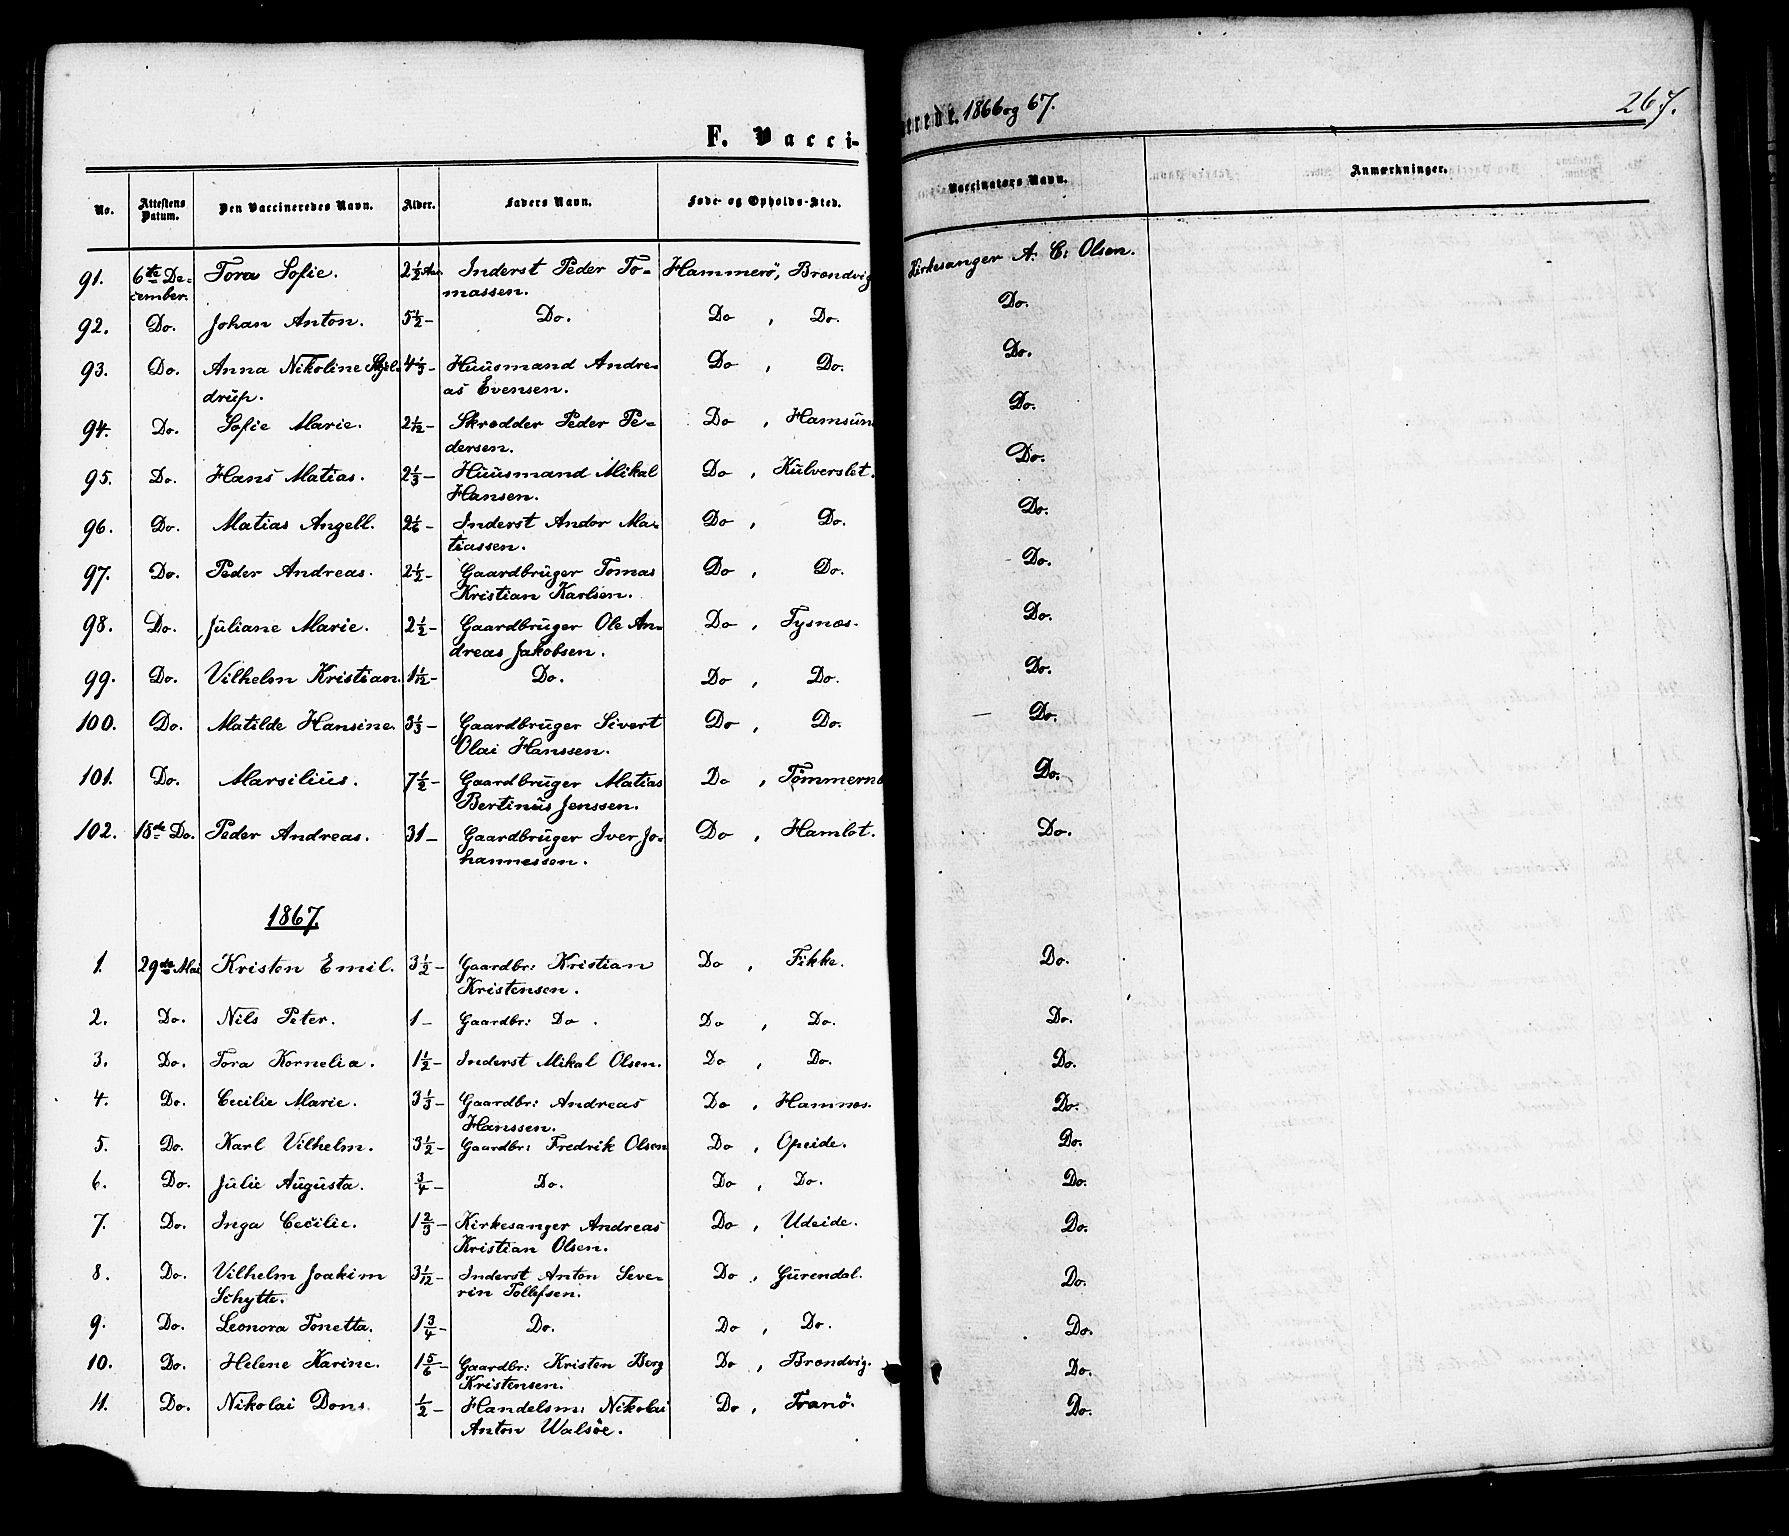 F. Vacci-
nerede. 1866 og 67.
267.
No. Attestens Datum. Den Vaccineredes Navn. Alder. Faders Navn. Føde- og Opholds-Sted. Vaccinators Navn. Anmærkninger.
91. 6te De- Tora Sofie. 2 1/3 Aar Inderst Peder To- Hammerö, Brændvig Kirkesanger A. C. Olsen.
cember. massen.
92. Do. Johan Anton. 5 1/2 – Do. Do , Do. Do.
93. Do. Anna Nikoline Skjel- 4 1/3 – Huusmand Andre- Do , Do. Do.
drup. as Evensen.
94. Do. Sofie Marie. 2 1/12 – Skrædder Peder Pe- Do , Hamsun Do.
dersen.
95. Do. Hans Matias. 2 1/3 – Huusmand Mikal Do , Kulverslet. Do.
Hansen.
96. Do. Matias Angell. 2 1/6 – Inderst Andor Ma- Do , Do. Do.
tiassen.
97. Do. Peder Andreas. 2 1/2 – Gaardbruger Tomas Do , Do. Do.
Kristian Karlsen.
98. Do. Juliane Marie. 2 1/2 – Gaardbruger Ole An- Do , Tysnæs. Do.
dreas Jakobsen.
99. Do. Vilhelm Kristian. 1 1/12 – Do. Do , Do. Do.
100. Do. Matilde Hansine. 3 1/3 – Gaardbruger Sivert Do , Do. Do.
Olai Hanssen.
101. Do. Marsilius. 7 1/2 – Gaardbruger Matias Do , Tömmernæ Do.
Bertinus Jenssen.
102. 18de Do. Peder Andreas. 31 – Gaardbruger Iver Jo- Do , Hamlot. Do.
hannessen.
1867.
1. 29de Mai Kristen Emil. 3 1/2 – Gaardbr: Kristian Do , Fikke. Do.
Kristensen.
2. Do. Nils Peter. 1 – Gaardbr: Do . Do , Do. Do.
3. Do. Tora Kornelia. 1 1/2 – Inderst Mikal Olsen. Do , Do. Do.
4. Do. Cecilie Marie. 3 1/3 – Gaardbr: Andreas Do , Hamnæs. Do.
Hanssen.
5. Do. Karl Vilhelm. 3 1/2 – Gaardbr: Fredrik Olsen Do , Opeide. Do.
6. Do. Julie Augusta. 3/4 – Do. Do , Do. Do.
7. Do. Inga Cecilie. 1 2/3 – Kirkesanger Andreas Do , Udeide. Do.
Kristian Olsen.
8. Do. Vilhelm Joakim 3 1/12 – Inderst Anton Seve- Do , Gurendal. Do.
Schytte. rin Tollefsen.
9. Do. Leonora Tonetta. 1 3/4 – Do. Do , Do. Do.
10. Do. Helene Karine. 1 5/6 – Gaardbr: Kristen Berg Do , Brændvig. Do.
Kristensen.
11. Do. Nikolai Dons. 1/2 – Handelsm: Nikolai Do , Tranö. Do.
Anton Walsöe.